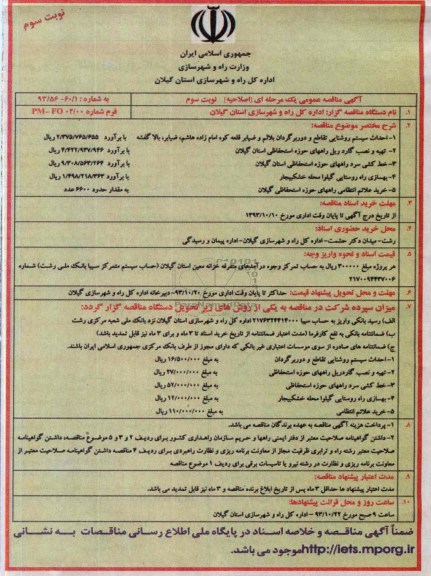 نوبت سوم
جمهوری اسلامی ایران
وزارت راه و شهرسازی
اداره کل راه و شهرسازی استان گیلان
آگهی مناقصه عمومی یک مرحله ای (اصلاحیه) نوبت سوم
به شماره : ۶۰/۱-۹۳/۵۶
۱. نام دستگاه مناقصه گزار: اداره کل راه و شهرسازی استان گیلان
فرم شماره PM-FO ۰۲/۰۰
۲. شرح مختصر موضوع مناقصه:
۱- احداث سیستم روشنایی تقاطع و دوربرگردان بلالم و ضیابر قلعه کوه امام زاده هاشم، ضیابر، بالا گفشه با برآورد ۲/۳۷۵/۷۶۵/۶۵۵ ریال
۲- تهیه و نصب گارد ریل راههای حوزه استحفاظی استان گیلان با برآورد ۴/۲۲۲/۹۳۷/۹۴۶ ریال
۳- خط کشی سرد راههای حوزه استحفاظی استان گیلان با برآورد ۹/۳۰۸/۵۶۳/۲۶۴ ریال
۴- بهسازی راه روستایی گیلوا محله خشکبیجار با برآورد ۱/۴۹۸/۲۱۸/۳۶۳ ریال
۵- خرید علائم انتظامی راههای استان گیلان به مقدار حدود ۶۶۰۰ عدد
۳. مهلت خرید اسناد مناقصه:
از تاریخ درج آگهی تا پایان وقت اداری مورخ ۱۳۹۳/۱۰/۱۰
۴. محل خرید حضوری اسناد:
رشت- میدان دکتر حشمت- اداره کل راه و شهرسازی گیلان- اداره پیمان و رسیدگی
۵. قیمت اسناد و نحوه واریز وجه:
هر پروژه مبلغ ۳۰۰۰۰۰ ریال به حساب تمرکز وجوه درآمدهای متفرقه خزانه معین استان گیلان (حساب سیستم متمرکز سیبا بانک ملی رشت) شماره
۲۱۷۰۰۹۴۴۳۷۰۰۶
۶. مهلت و محل تحویل پیشنهاد قیمت: حداکثر تا پایان وقت اداری مورخ ۹۳/۱۰/۲۰- دبیرخانه اداره کل راه و شهرسازی گیلان
۷. میزان سپرده شرکت در مناقصه به یکی از روش های زیر تحویل دستگاه مناقصه گزار گردد:
الف) رسید بانکی واریز به حساب سیبا اداره کل راه و شهرسازی استان گیلان نزد بانک ملی شعبه مرکزی رشت
ب) ضمانتنامه بانکی به نفع کارفرما (مدت اعتبار ضمانتنامه از تاریخ خرید اسناد تا ۳ ماه و برای ۳ ماه نیز قابل تمدید باشد).
ج) ضمانتنامه های صادره از سوی موسسات اعتباری غیر بانکی که دارای مجوز از طرف بانک مرکزی جمهوری اسلامی ایران باشند.
۱- احداث سیستم روشنایی تقاطع و دوربرگردان به مبلغ ۱۶/۵۰۰/۰۰۰ ریال
۲- تهیه و نصب گاردریل راههای حوزه استحفاظی به مبلغ ۲۷/۰۰۰/۰۰۰ ریال
۳- خط کشی سرد راههای حوزه استحفاظی به مبلغ ۵۲/۰۰۰/۰۰۰ ریال
۴- بهسازی راه روستایی گیلوا محله خشکبیجار به مبلغ ۱۲/۰۰۰/۰۰۰ ریال
۵- خرید علائم انتظامی به مبلغ ۱۱۰/۰۰۰/۰۰۰ ریال
۸. ۱- پرداخت هزینه آگهی مناقصه به عهده برندگان مناقصه می باشد.
۲- داشتن گواهینامه صلاحیت معتبر از دفتر ایمنی راهها و حریم سازمان راهداری کشور برای ردیف ۲ و ۳ و ۵ موضوع مناقصه، داشتن گواهینامه
صلاحیت معتبر رشته راه و ترابری ظرفیت مجاز از معاونت برنامه ریزی و نظارت راهبردی برای ردیف ۴ مناقصه داشتن گواهینامه صلاحیت معتبر از
معاونت برنامه ریزی و نظارت در رشته نیرو یا تاسیسات برقی برای ردیف ۱ موضوع مناقصه
۹. مدت اعتبار پیشنهاد مناقصه:
مدت اعتبار پیشنهاد ها حداقل ۳ ماه پس از تاریخ ابلاغ برنده مناقصه و ۳ ماه نیز قابل تمدید می باشد.
۱۰. ساعت روز و محل قرائت پیشنهادها:
ساعت ۹ صبح مورخ ۹۳/۱۰/۲۲ - اداره کل راه و شهرسازی استان گیلان
ضمناً آگهی مناقصه و خلاصه اسناد در پایگاه ملی اطلاع رسانی مناقصات به نشانی
http://iets.mporg.ir موجود می باشد.